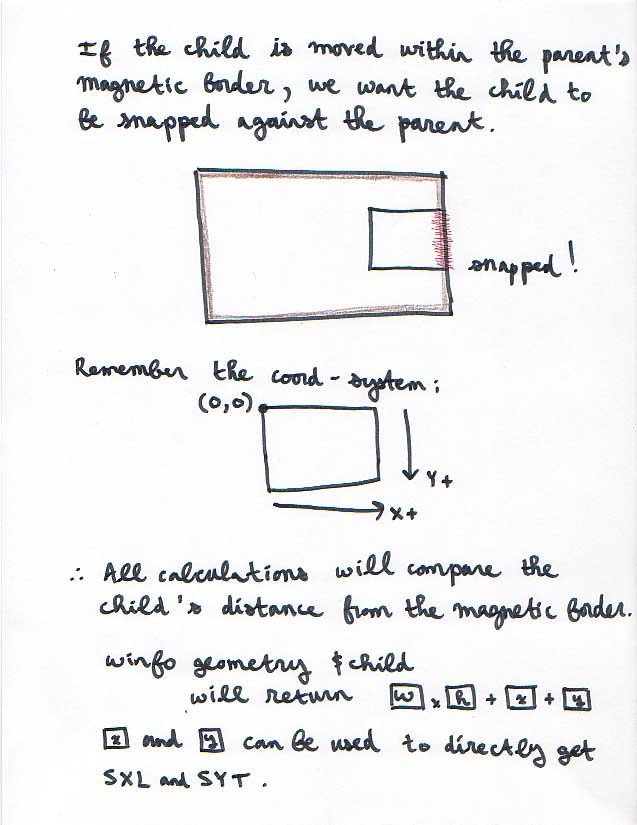 If the child is moved within the parent's
magnetic border, we want the child to
be snapped against the parent.
snapped!
Remember the coord-system:
(0,0)
Y+
X+
∴ All calculations will compare the
child's distance from the magnetic border.
winfo geometry $child
will return w x h + x + y
x and y can be used to directly get
SXL and SYT.